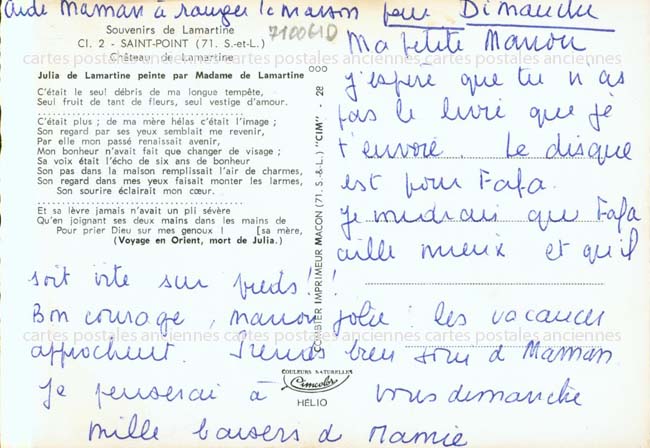 Aide Maman à ranger la maison pour Dimanche
Souvenirs de Lamartine
Cl. 2 - SAINT-POINT (71. S.-et-L.)
Château de Lamartine
71006ID
Julia de Lamartine peinte par Madame de Lamartine
C'était le seul débris de ma longue tempête,
Seul fruit de tant de fleurs, seul vestige d'amour.
C'était plus ; de ma mère hélas c'était l'image ;
Son regard par ses yeux semblait me revenir,
Par elle mon passé renaissait avenir,
Mon bonheur n'avait fait que changer de visage ;
Sa voix était l'écho de six ans de bonheur
Son pas dans la maison remplissait l'air de charmes,
Son regard dans mes yeux faisait monter les larmes,
Son sourire éclairait mon cœur.
Et sa lèvre jamais n'avait un pli sévère
Qu'en joignant ses deux mains dans les mains de
Pour prier Dieu sur mes genoux ! [sa mère,
(Voyage en Orient, mort de Julia.)
COMBIER IMPRIMEUR MACON (71. S.-&-L.) "CIM" - 28
000
Ma petite Manon
j'espère que tu n'as
pas le livre que je
t'envoie. Le disque
est pour Fafa.
Je voudrais que Fafa
aille mieux et qu'il
soit vite sur pieds !!
Bon courage, Manon jolie : les vacances
approchent. Prends bien soin de Maman
Je penserai à vous dimanche
Mille baisers de Mamie
COULEURS NATURELLES
Cimcolor
HELIO
cartes postales anciennes cartes postales anciennes
cartes postales anciennes cartes postales anciennes